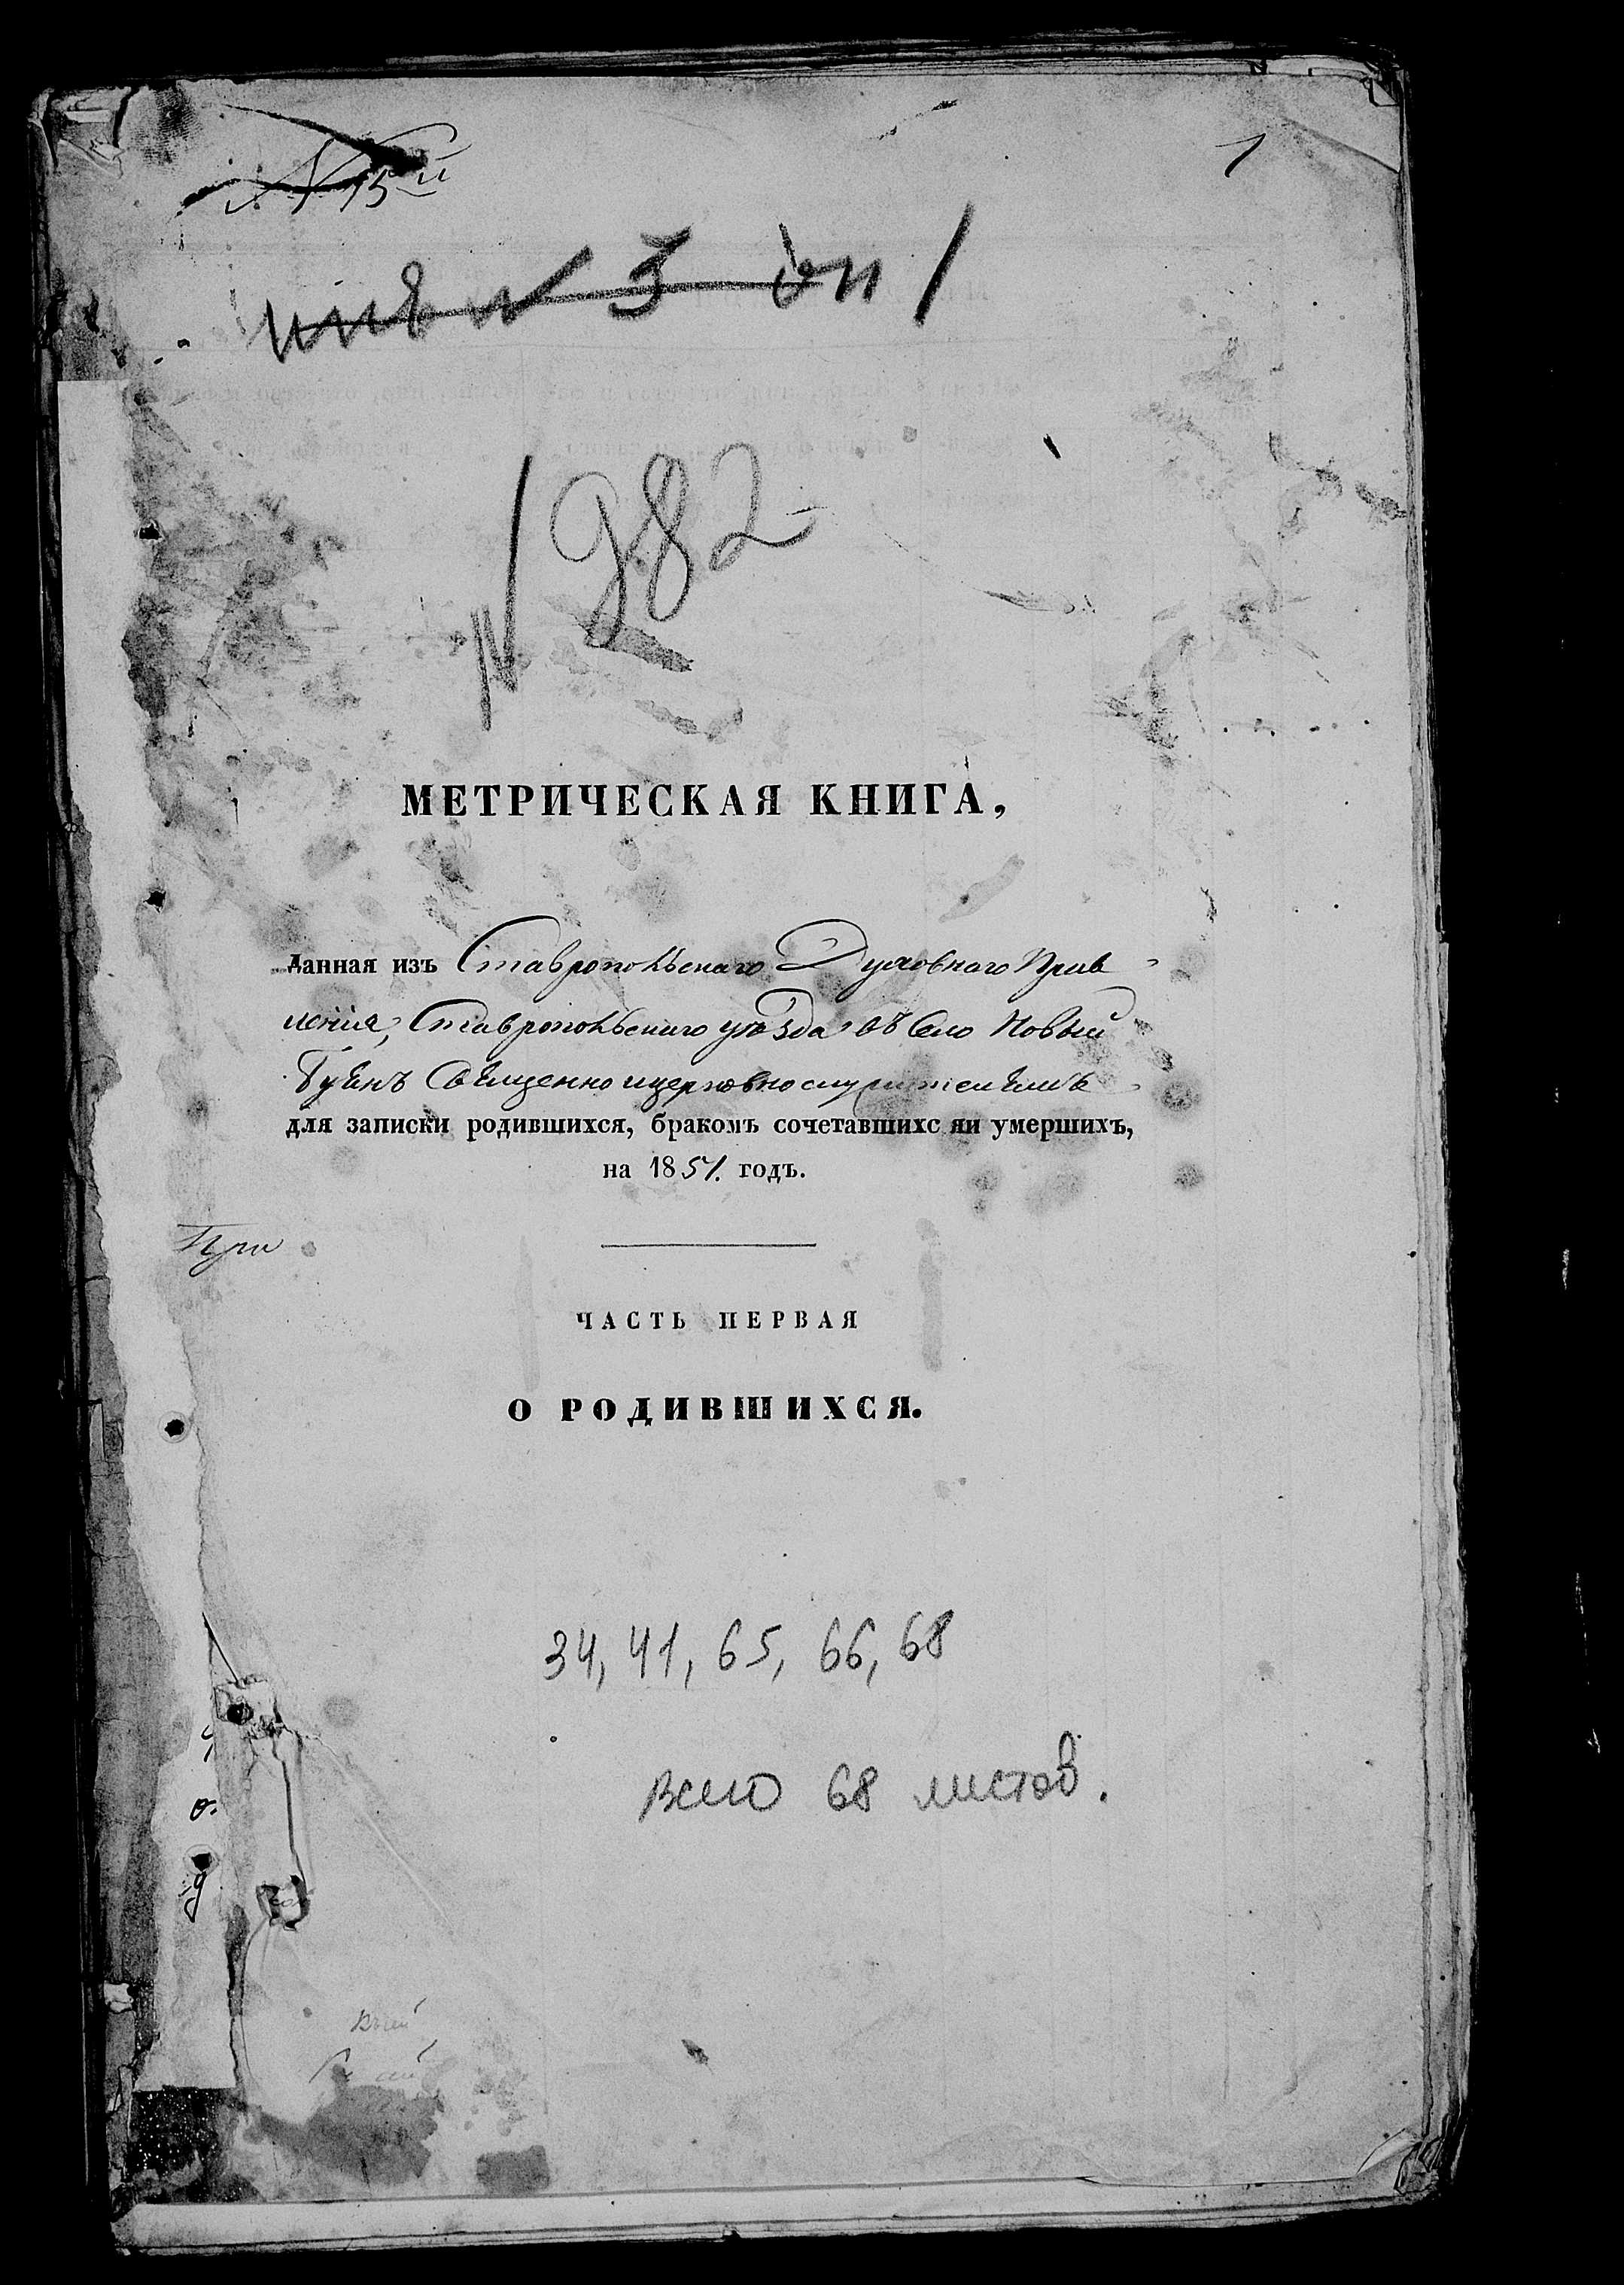 1
№ 15й
инв № 3 оп 1
№ 982
МЕТРИЧЕСКАЯ КНИГА,
данная изъ Ставропольскаго Духовнаго Прав
ленія, Ставропольскаго уѣзда въ Село Новый
Буянъ Священно и церковно служителямъ
для записки родившихся, бракомъ сочетавшихс яи умершихъ,
на 1851. годъ.
При
ЧАСТЬ ПЕРВАЯ
О РОДИВШИХСЯ.
34, 41, 65, 66, 68
всего 68 листов.